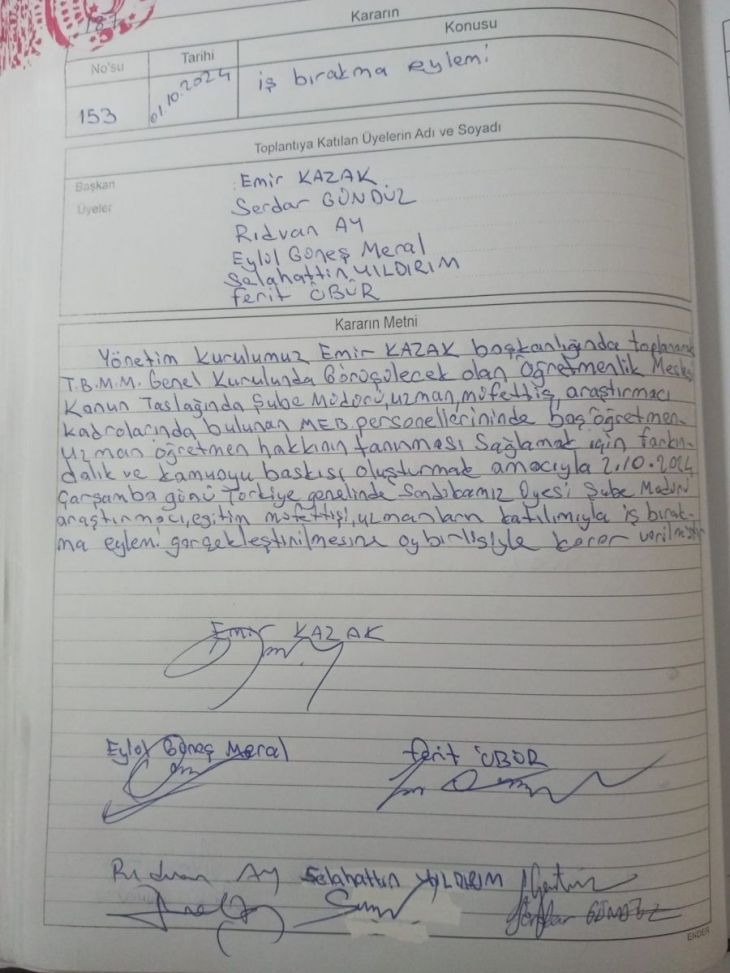 187
Kararın
No'su
Tarihi
Konusu
153
01.10.2024
iş bırakma eylemi
Toplantıya Katılan Üyelerin Adı ve Soyadı
Başkan : Emir KAZAK
Üyeler Serdar GÜNDÜZ
Rıdvan AY
Eylül Güneş Meral
Selahattin YILDIRIM
Ferit ÜBÜR
Kararın Metni
Yönetim Kurulumuz Emir KAZAK başkanlığında toplanarak
T.B.M.M. Genel Kurulunda Görüşülecek olan Öğretmenlik Mesleği
Kanun Taslağında Şube Müdürü, uzman, müfettiş, araştırmacı
kadrolarında bulunan MEB personellerininde baş öğretmen-
uzman öğretmen hakkının tanınması Sağlamak için farkın-
dalık ve kamuoyu baskısı oluşturmak amacıyla 2.10.2024
Çarşamba günü Türkiye genelinde Sendikamız Üyesi Şube Müdürü
araştırmacı, eğitim müfettişi, uzmanların katılımıyla iş bırak-
ma eylemi gerçekleştirilmesine oybirliğiyle karar verilmiştir
Emir KAZAK
Eylül Güneş Meral Ferit ÜBÜR
Rıdvan AY Selahattin YILDIRIM
Serdar GÜNDÜZ
ENDER